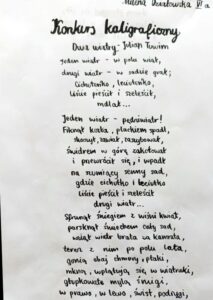 Konkurs kaligraficzny
Dwa wiatry - Julian Tuwim
Jeden wiatr - w polu wiał,
drugi wiatr - w sadzie grał;
Cichuteńko, leciuteńko,
Liście pieścił i szeleścił,
mdlał...
Jeden wiatr - pędziwiatr!
Fiknął kozła, plackiem spadł,
skoczył, zawiał, zaszybował,
świdrem w górę zakołował
i przewrócił się, i wpadł
na szumiący senny sad,
gdzie cichutko i leciutko
Liście pieścił i szeleścił
drugi wiatr...
Sfrunął śniegiem z wiśni kwiat,
parsknął śmiechem cały sad,
wziął wiatr brata za kamrata,
teraz z nim po polu lata,
gonią obaj chmury, ptaki,
mkną, wplątują się w wiatraki,
głupkowate mylą śmigi,
w prawo, w lewo, świst, podrygi,